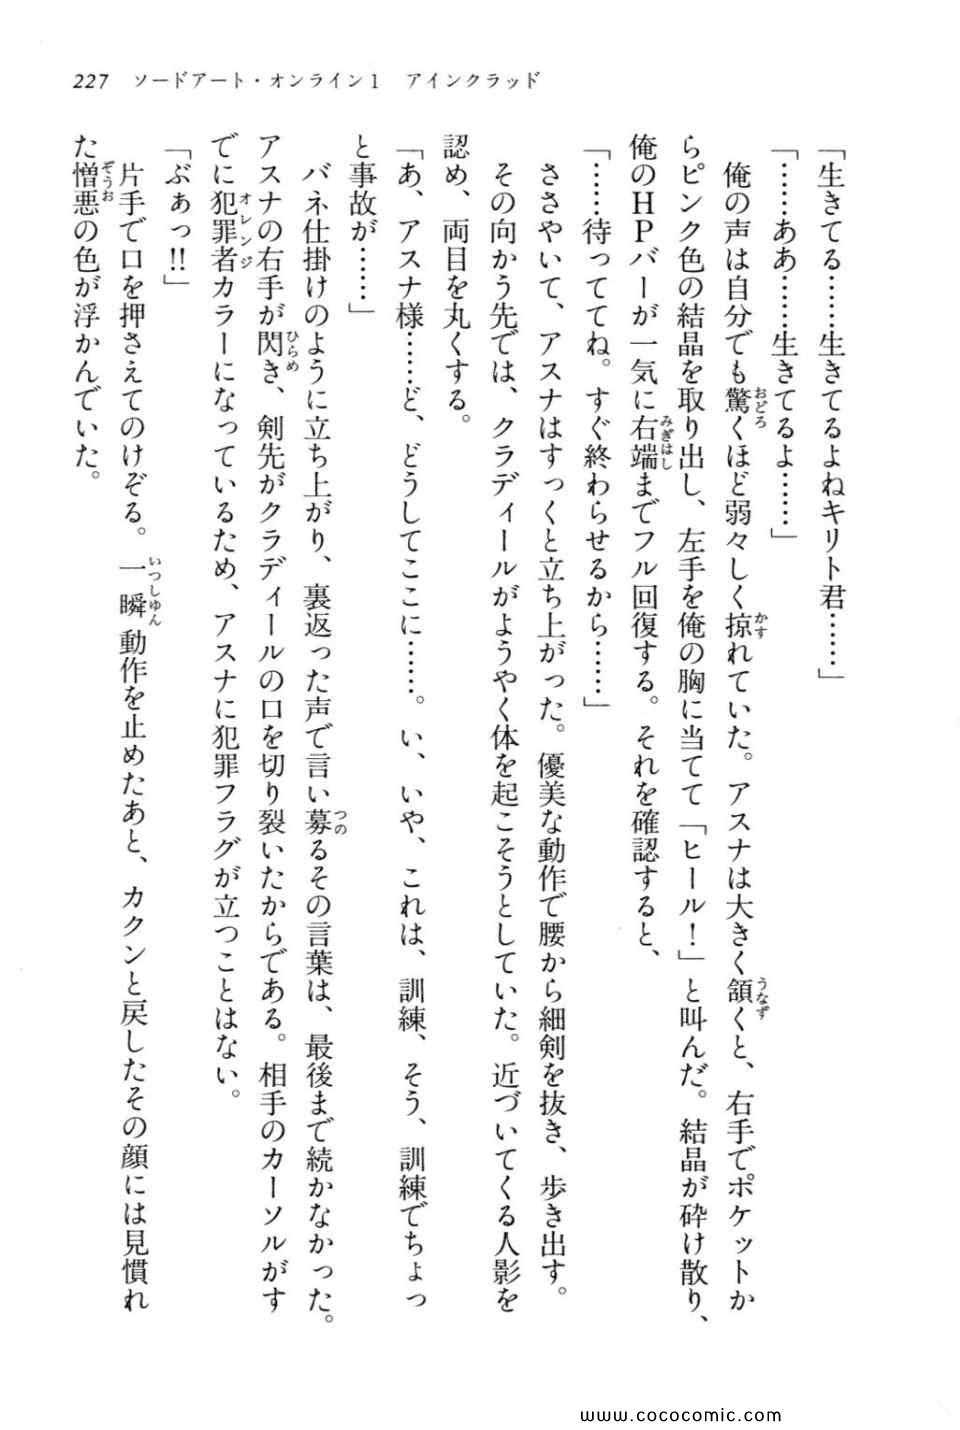 227　ソードアート・オンライン1　アインクラッド
「生きてる……生きてるよねキリト君……」
「……ああ……生きてるよ……」
　俺の声は自分でも驚くほど弱々しく掠れていた。アスナは大きく頷くと、右手でポケットか
らピンク色の結晶を取り出し、左手を俺の胸に当てて「ヒール！」と叫んだ。結晶が砕け散り、
俺のHPバーが一気に右端までフル回復する。それを確認すると、
「……待っててね。すぐ終わらせるから……」
　ささやいて、アスナはすっくと立ち上がった。優美な動作で腰から細剣を抜き、歩き出す。
　その向かう先では、クラディールがようやく体を起こそうとしていた。近づいてくる人影を
認め、両目を丸くする。
「あ、アスナ様……ど、どうしてここに……。い、いや、これは、訓練、そう、訓練でちょっ
と事故が……」
　バネ仕掛けのように立ち上がり、裏返った声で言い募るその言葉は、最後まで続かなかった。
アスナの右手が閃き、剣先がクラディールの口を切り裂いたからである。相手のカーソルがす
でに犯罪者カラーになっているため、アスナに犯罪フラグが立つことはない。
「ぶぁっ!!」
　片手で口を押さえてのけぞる。一瞬動作を止めたあと、カクンと戻したその顔には見慣れ
た憎悪の色が浮かんでいた。
おどろ
かす
うなず
みぎはし
つの
ひらめ
オレンジ
いつしゆん
ぞうお
www.cococomic.com